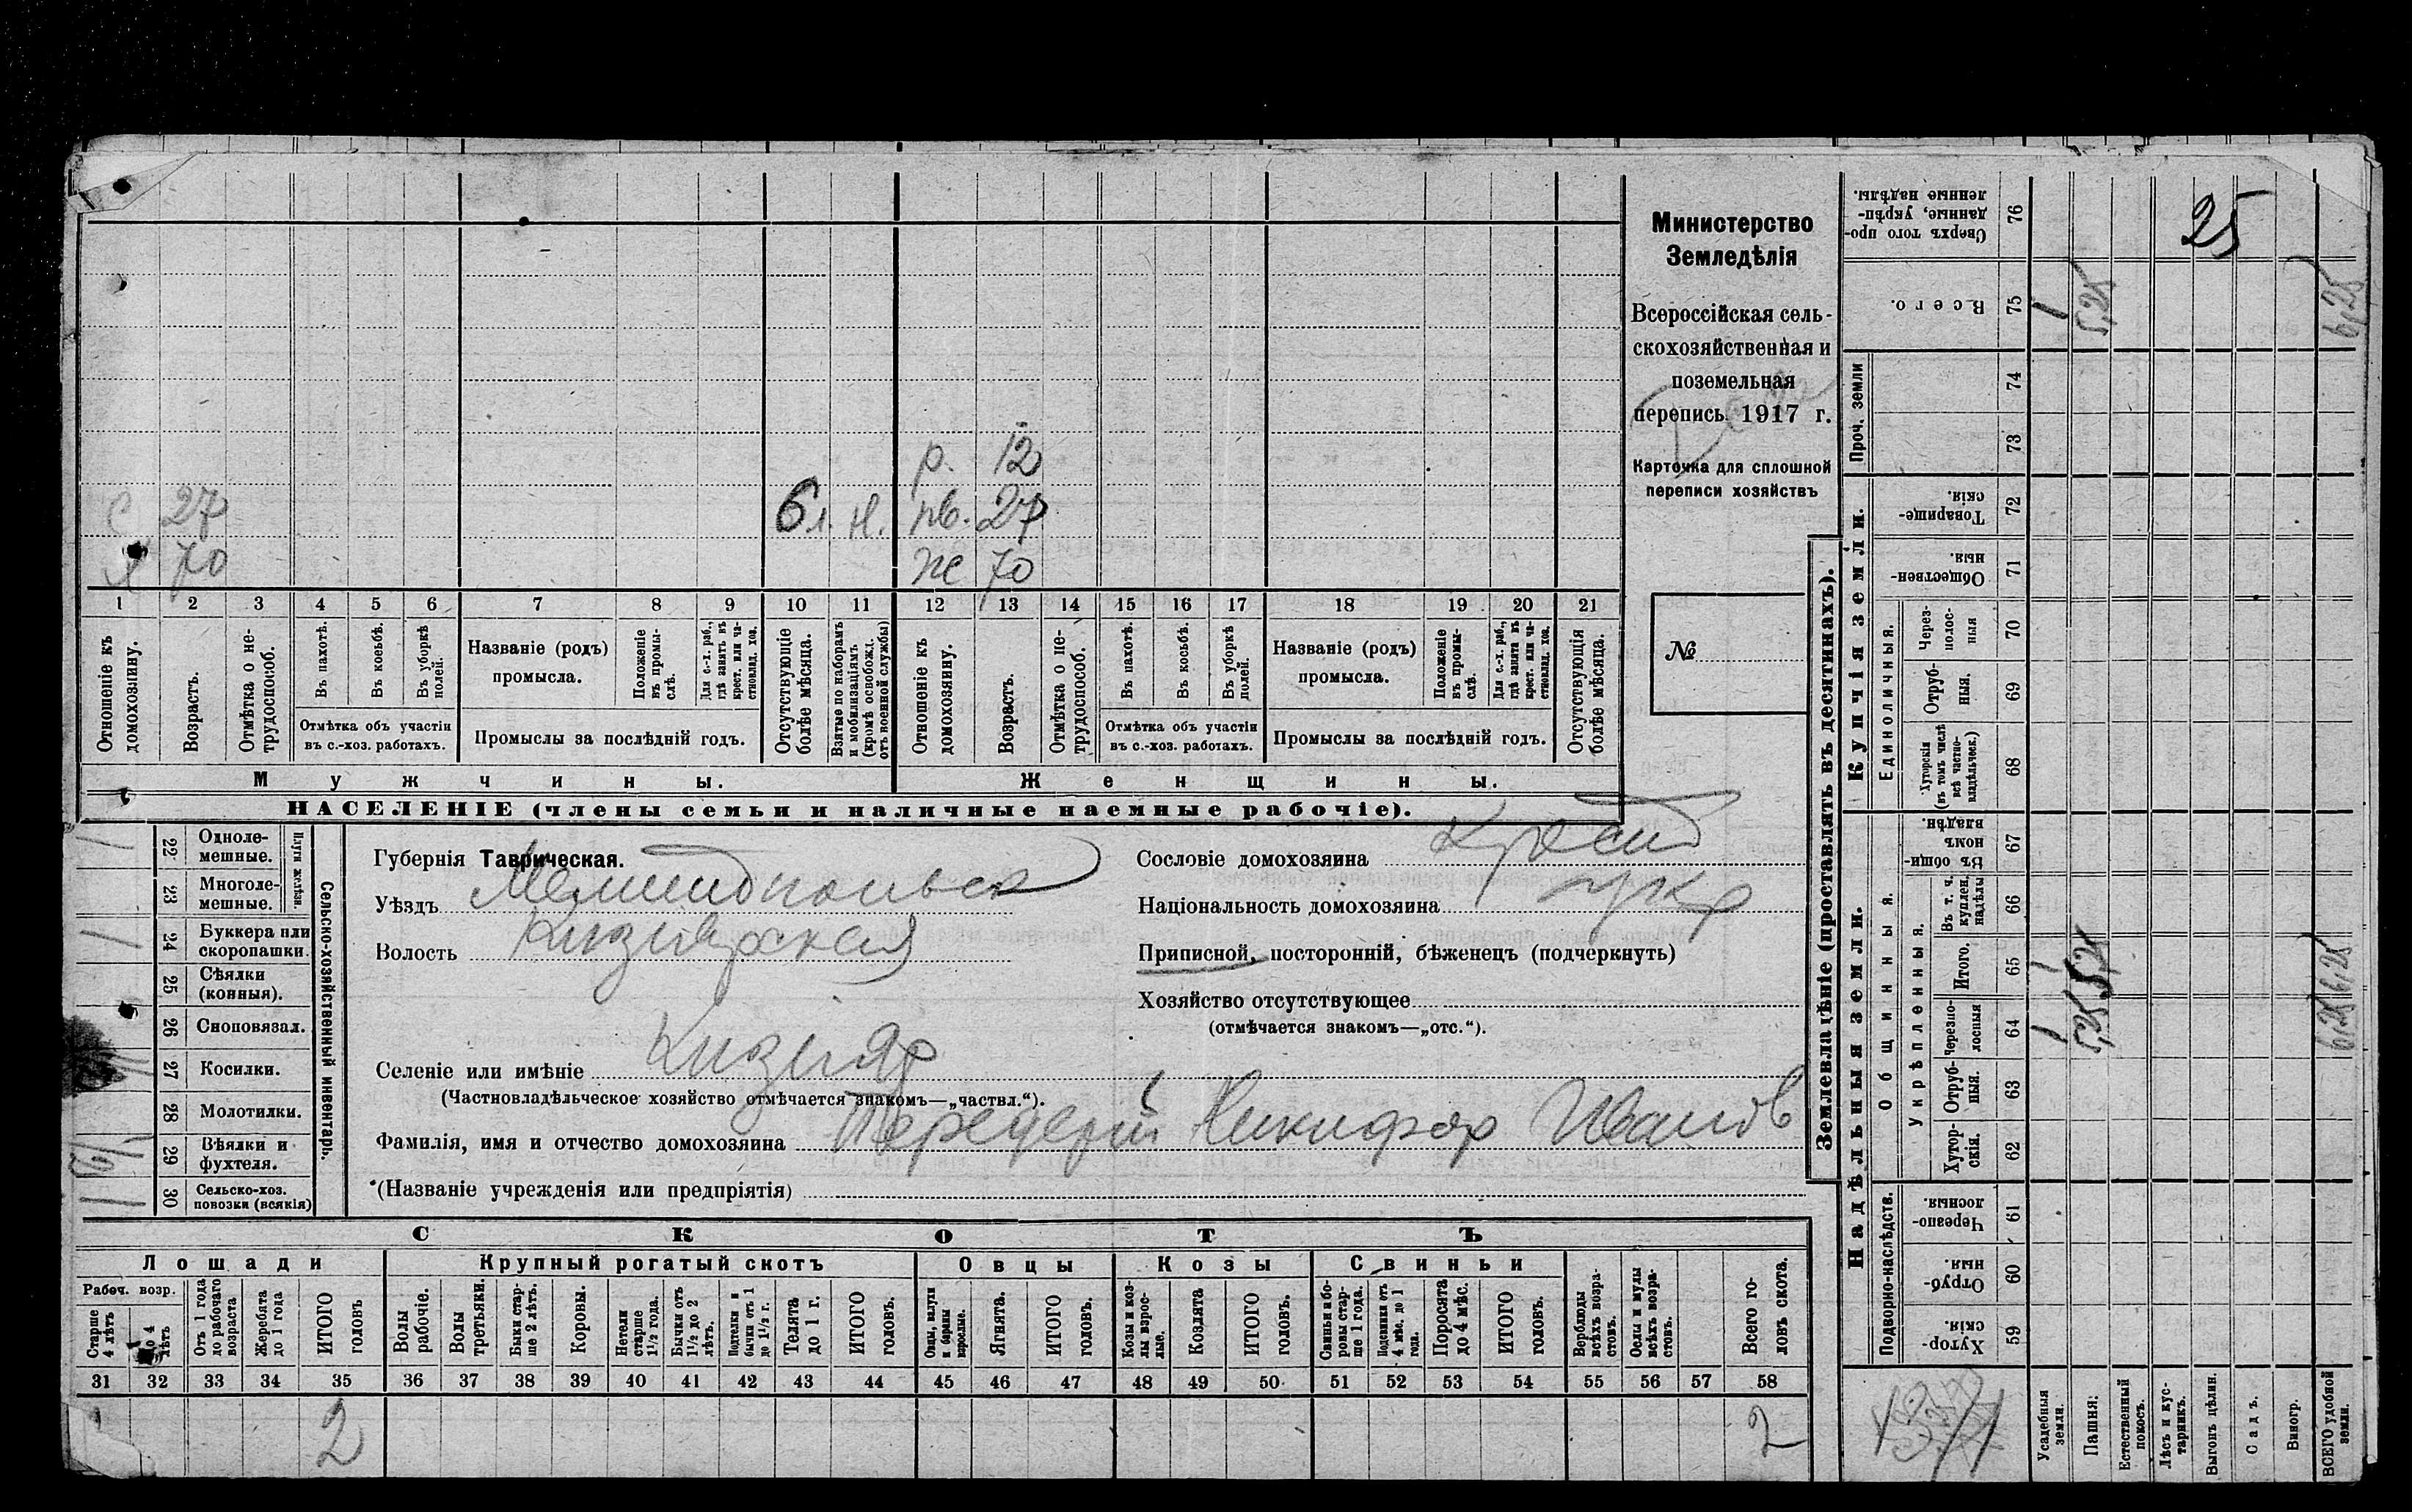 р. 12
27 6 л. н. нв. 27
70 ж 70
1 2 3 4 5 6 7 8 9 10 11 12 13 14 15 16 17 18 19 20 21
Отношеніе къ домохозяину.
Возрастъ.
Отмѣтка о нетрудоспособ.
Въ пахотѣ.
Въ косьбѣ.
Въ уборкѣ полей.
Отмѣтка объ участіи
въ с.-хоз. работахъ.
Названіе (родъ)
промысла.
Положеніе въ промыслѣ.
Для с.-х. раб., гдѣ занятъ въ крест. или частновлад. хоз.
Промыслы за послѣдній годъ.
Отсутствующіе болѣе мѣсяца.
Взятые по наборамъ и мобилизаціямъ (кромѣ освобожд. отъ военной службы)
Отношеніе къ домохозяину.
Возрастъ.
Отмѣтка о нетрудоспособ.
Въ пахотѣ.
Въ косьбѣ.
Въ уборкѣ полей.
Отмѣтка объ участіи
въ с.-хоз. работахъ.
Названіе (родъ)
промысла.
Положеніе въ промыслѣ.
Для с.-х. раб., гдѣ занята въ крест. или частновлад. хоз.
Промыслы за послѣдній годъ.
Отсутствующія болѣе мѣсяца.
Мужчины. Женщины.
НАСЕЛЕНІЕ (члены семьи и наличные наемные рабочіе).
Министерство
Земледѣлія
Всероссійская сель-
скохозяйственная и
поземельная
перепись 1917 г.
Карточка для сплошной
переписи хозяйствъ
№
22 Одноле-
мешные.
23 Многоле-
мешные.
Плуги желѣзн.
24 Буккера или
скоропашки.
25 Сѣялки
(конныя).
26 Сноповязал.
27 Косилки.
28 Молотилки.
29 Вѣялки и
фухтеля.
30 Сельско-хоз.
повозки (всякія)
Сельско-хозяйственный инвентарь.
Губернія Таврическая.
Уѣздъ Мелитопольск
Волость Кизиярская
Селеніе или имѣніе Кизияр
(Частновладѣльческое хозяйство отмѣчается знакомъ—„частвл.“).
Фамилія, имя и отчество домохозяина Передерій Никифор Иванов
(Названіе учрежденія или предпріятія)
Сословіе домохозяина Крест
Національность домохозяина укр
Приписной, посторонній, бѣженецъ (подчеркнуть)
Хозяйство отсутствующее
(отмѣчается знакомъ—„отс.“).
СКОТЪ
Лошади Крупный рогатый скотъ Овцы Козы Свиньи
Рабоч. возр.
Старше 4 лѣтъ
До 4 лѣтъ
Отъ 1 года до рабочаго возраста
Жеребята до 1 года
ИТОГО головъ
Волы рабочіе.
Волы третьяки.
Быки старше 2 лѣтъ.
Коровы.
Нетели старше 1½ года.
Бычки отъ 1½ до 2 лѣтъ.
Подтелки и бычки отъ 1 до 1½ г.
Телята до 1 г.
ИТОГО головъ.
Овцы, валухи и бараны взрослые.
Ягнята.
ИТОГО головъ.
Козы и козлы взрослые.
Козлята
ИТОГО головъ.
Свиньи и боровы старше 1 года.
Подсвинки отъ 4 мѣс. до 1 года.
Поросята до 4 мѣс.
ИТОГО головъ.
Верблюды всѣхъ возрастовъ.
Ослы и мулы всѣхъ возрастовъ.
Всего головъ скота.
31 32 33 34 35 36 37 38 39 40 41 42 43 44 45 46 47 48 49 50 51 52 53 54 55 56 57 58
2 2
Землевладѣніе (проставлять въ десятинахъ).
Надѣльныя земли.
Купчія земли.
Проч. земли
Подворно-наслѣдств.
Общинныя.
Укрѣпленныя.
Единоличныя.
59 Хуторскія
60 Отрубныя
61 Черезполосныя.
62 Хуторскія.
63 Отрубныя.
64 Черезполосныя 1 5,25 6,25
65 Итого. 1 5,25 6,25
66 Въ т. ч. куплен. надѣлы
67 Въ общинномъ владѣн.
68 Хуторскія (въ томъ числѣ всѣ частновладѣльческ.)
69 Отрубныя.
70 Черезполосныя
71 Общественныя.
72 Товарищескія.
73
74
75 Всего. 1 5,25 6,25
76 Сверхъ того проданные, укрѣпленные надѣлы.
25
Усадебныя земли.
Пашня.
Естественный покосъ.
Лѣсъ и кустарникъ.
Выгонъ цѣлин.
Садъ.
Виногр.
ВСЕГО удобной земли.